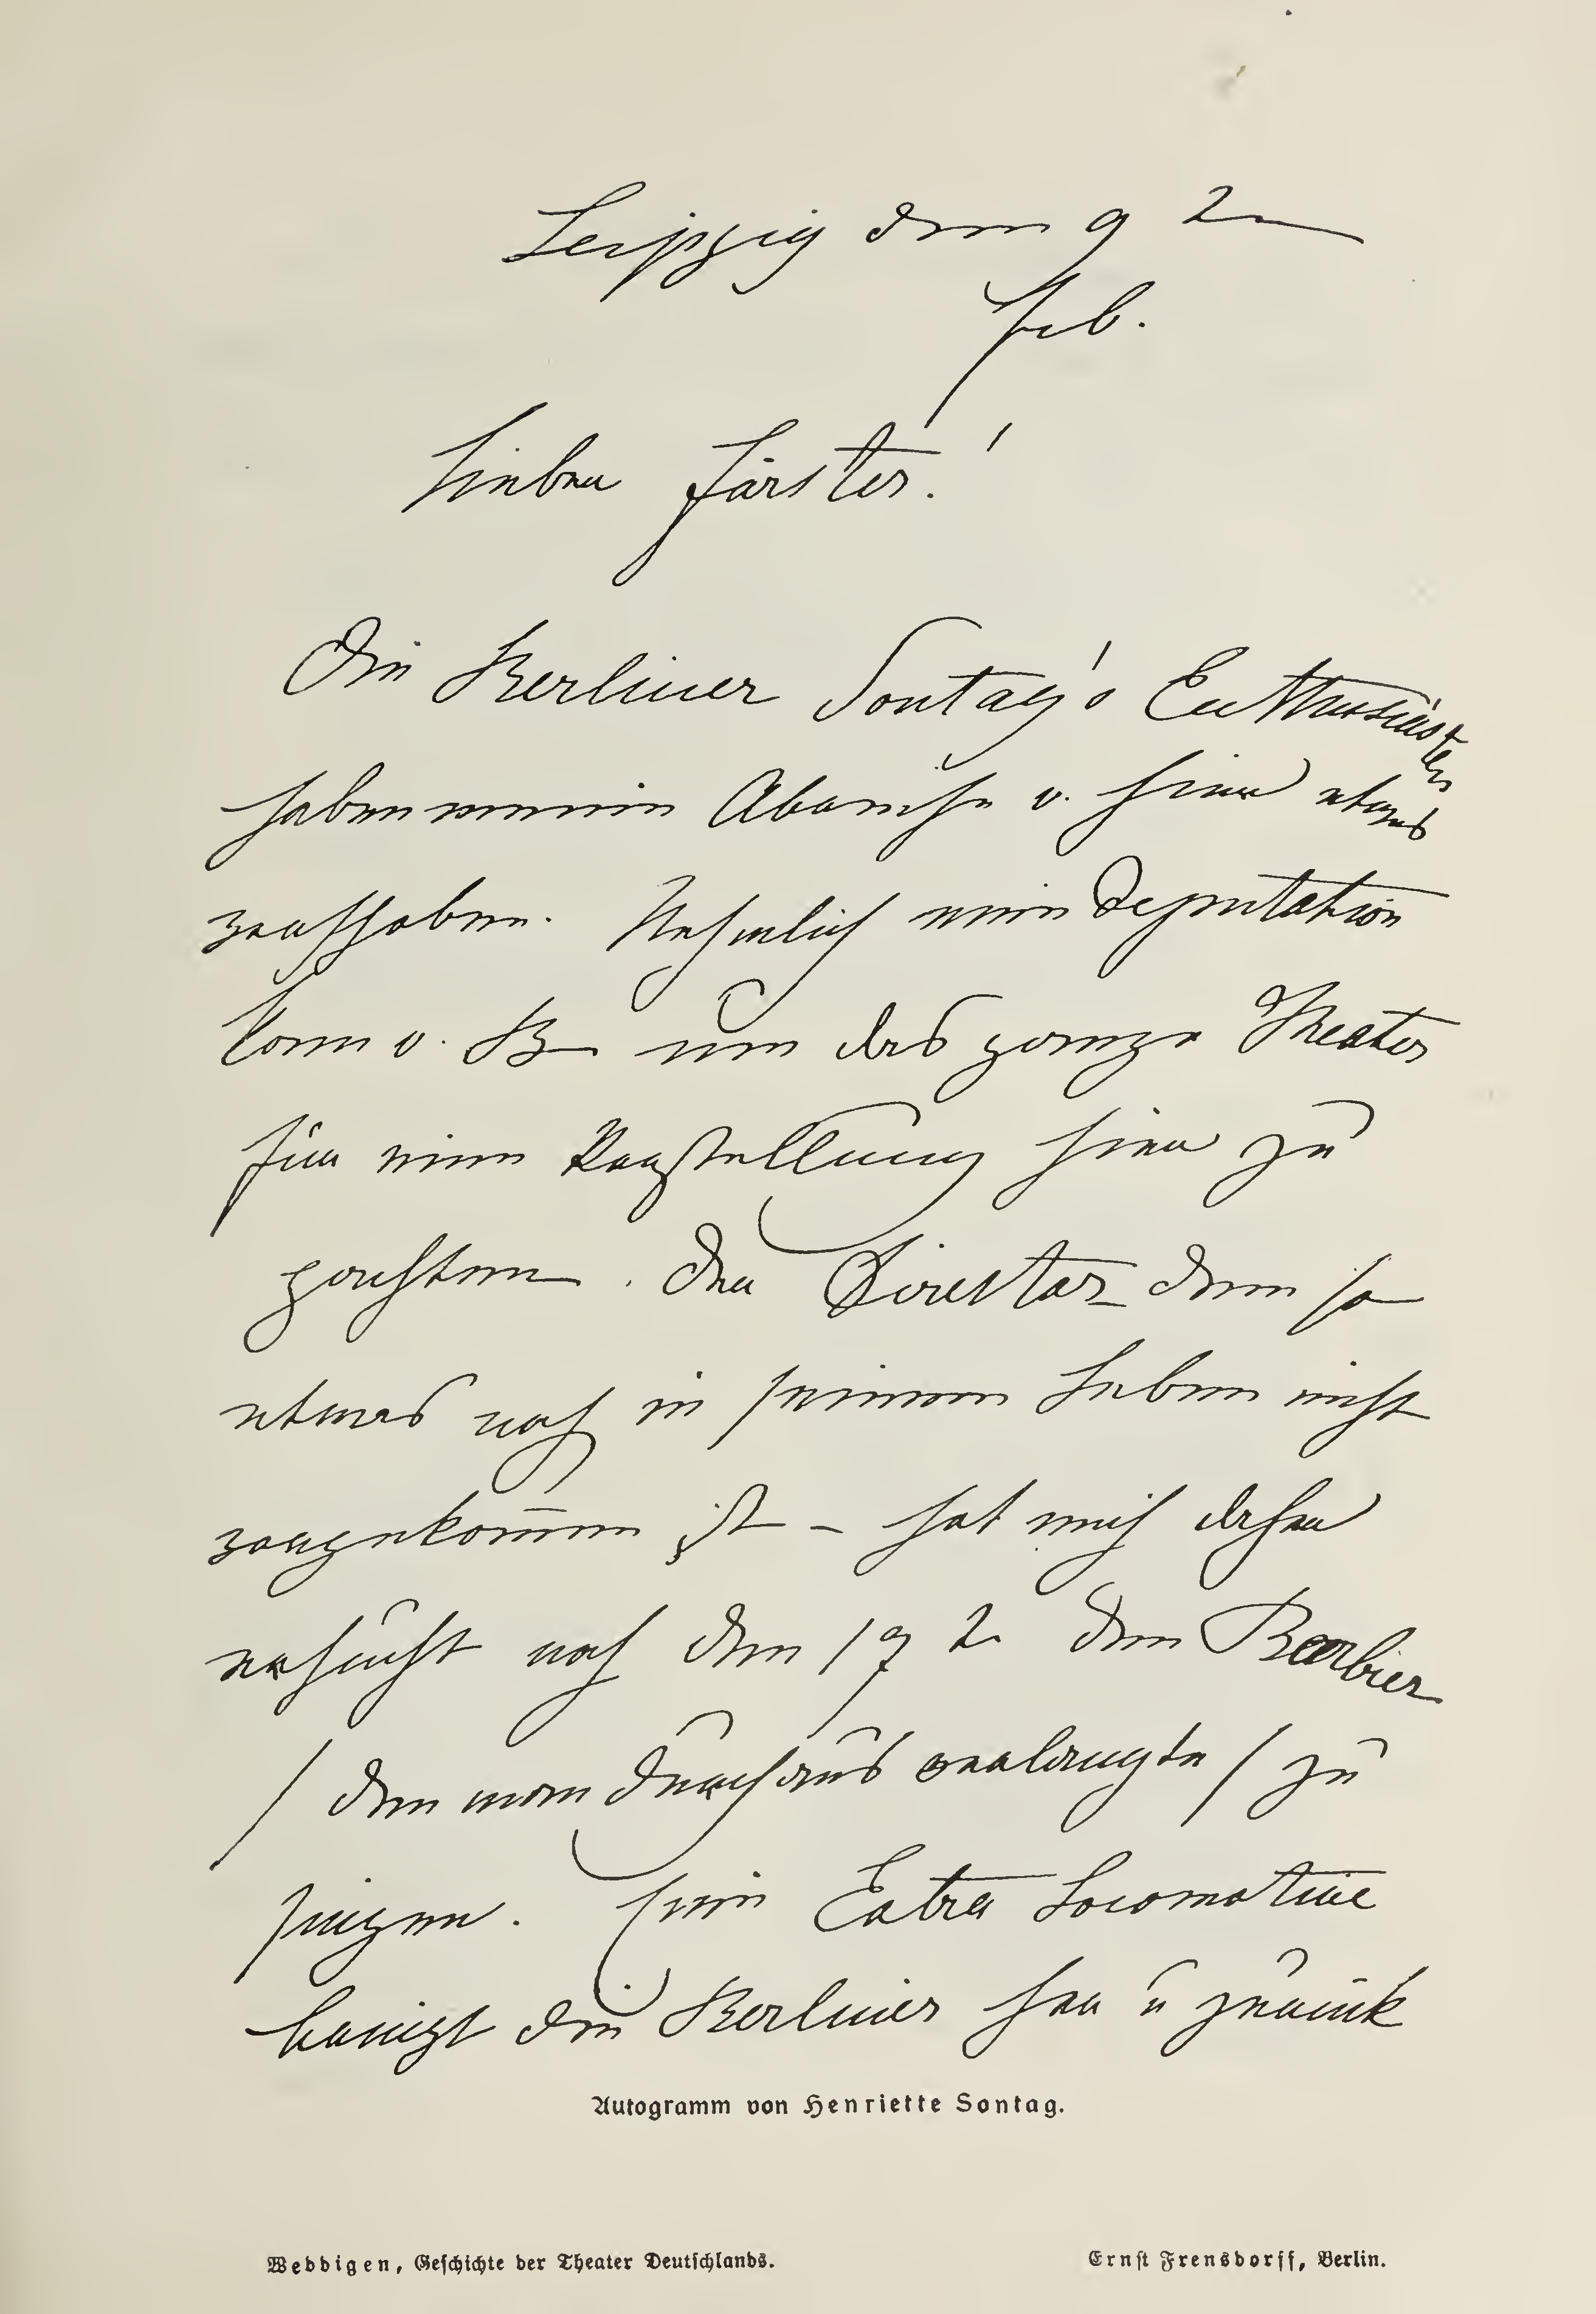 Leipzig den 9 2n
Feb.
Lieber Förster!
Die Berliner Sontag's Enthusiasten
haben meine Abreise v. hier etwas
verschoben. Nehmlich eine Deputation
kam v. B um das ganze Theater
für eine Vorstellung hier zu
pachten. Der Director dem so
etwas noch in seinem Leben nicht
vorgekom̄en ist – hat mich daher
ersucht noch den 19 2n den Barbier
/ den man durchaus verlangte / zu
singen. Eine Extra Locomotive
bringt die Berliner her u zurück
Autogramm von Henriette Sontag.
Weddigen, Geſchichte der Theater Deutſchlands.
Ernſt Frensdorff, Berlin.